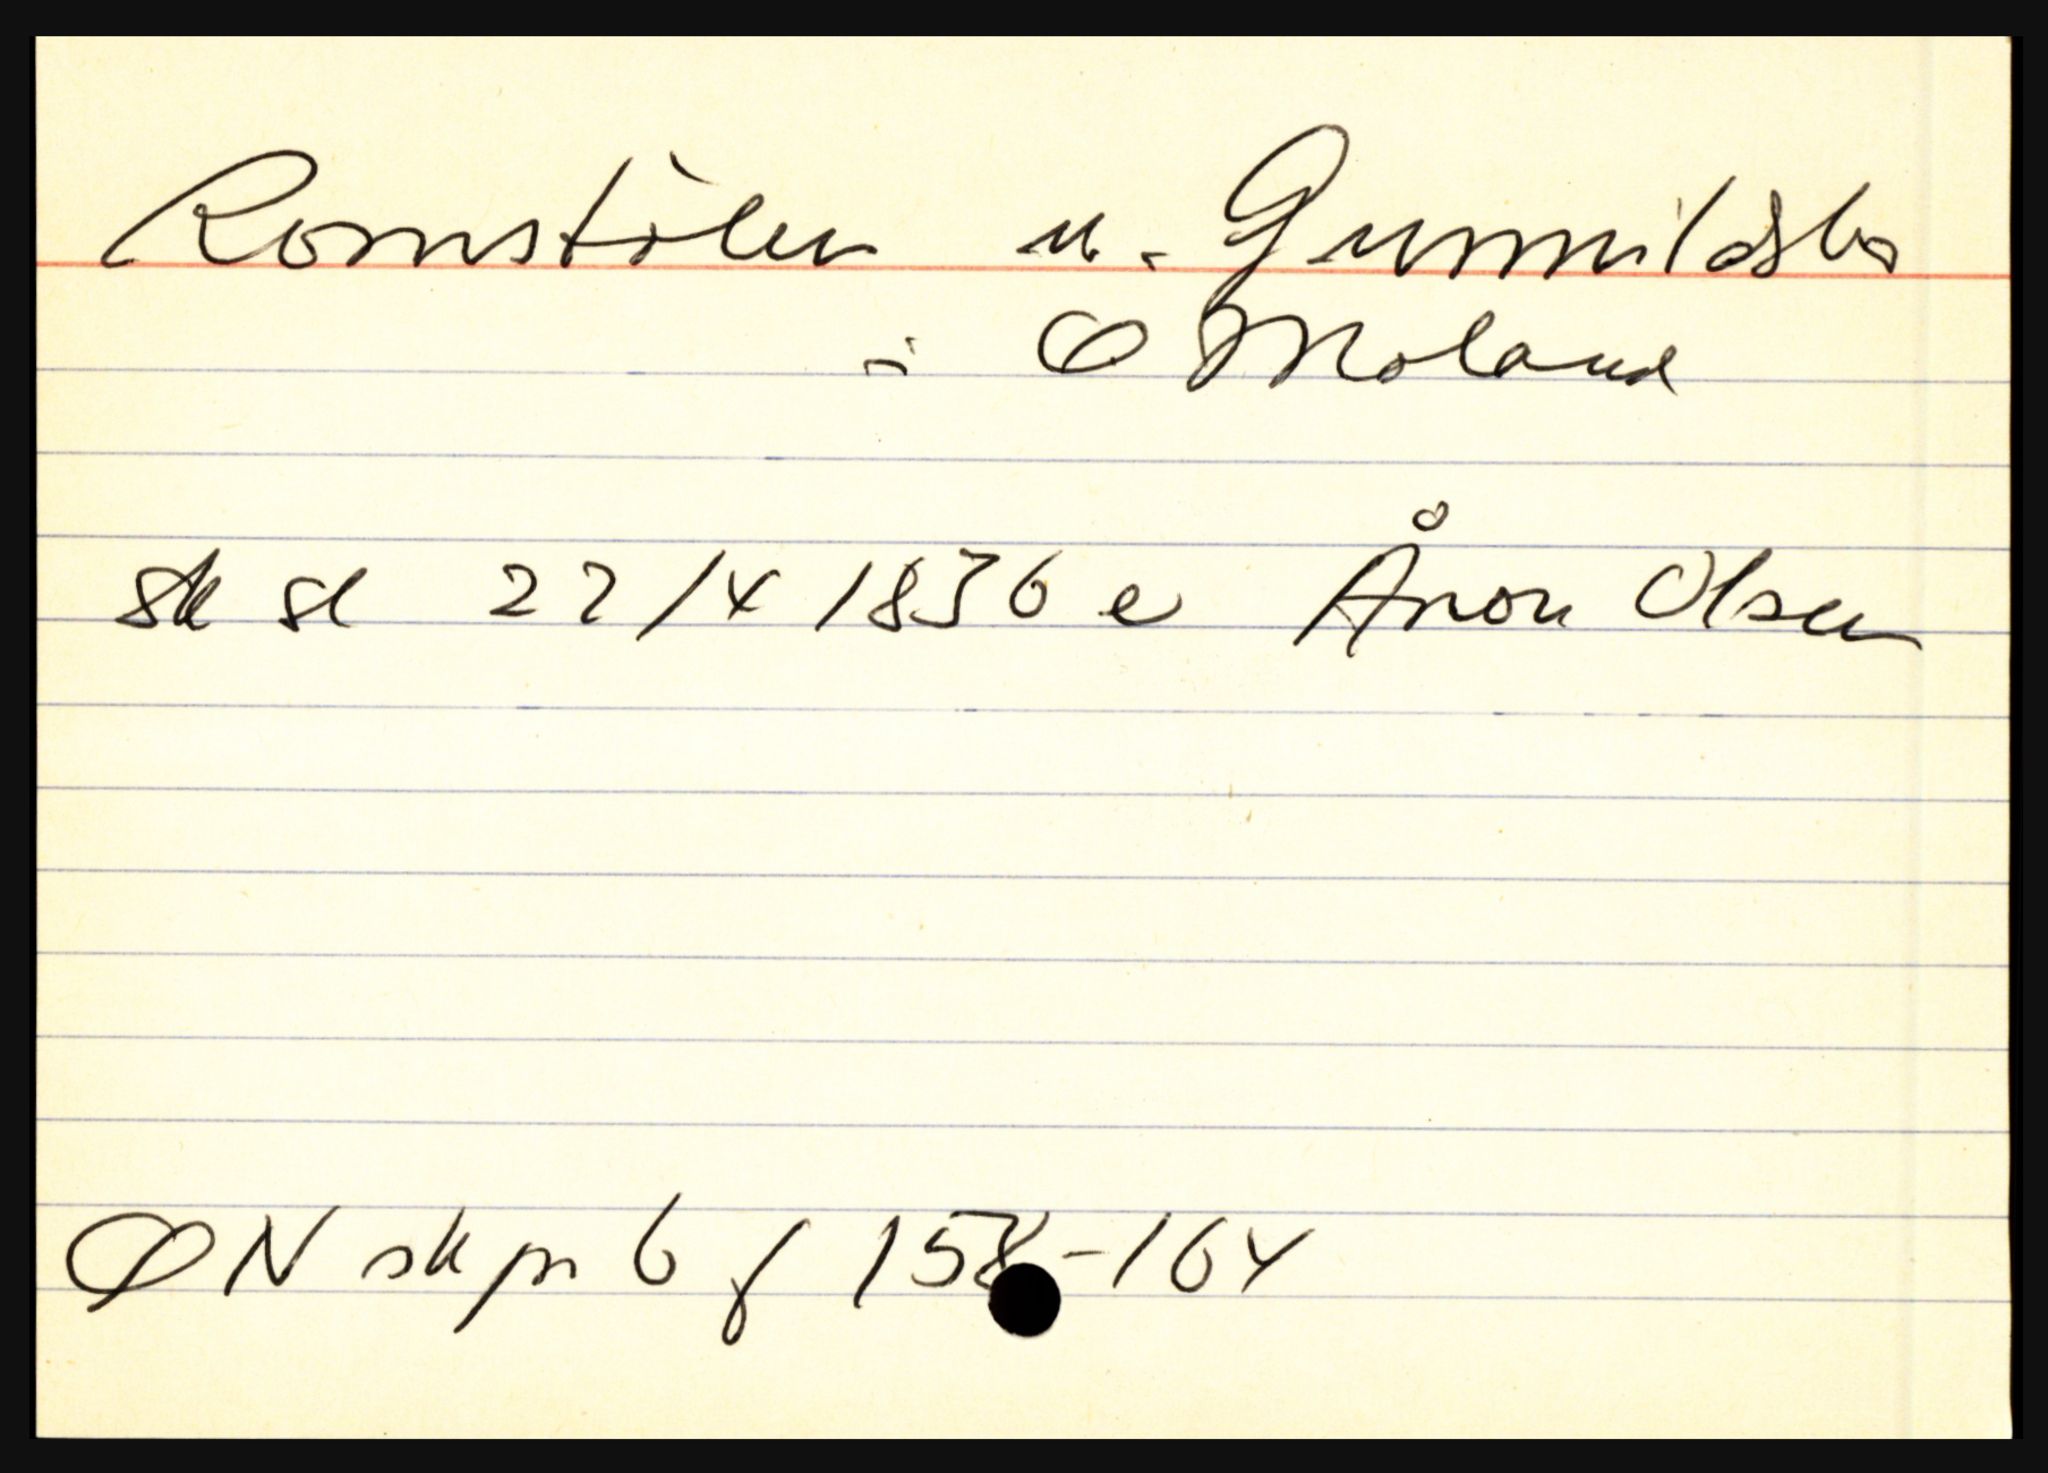 Romstølen u. Gunnildsbo
i Ø Moland
sk sl 22/4 1836 e Åron Olsen
ØN skpr 6 f 158-164